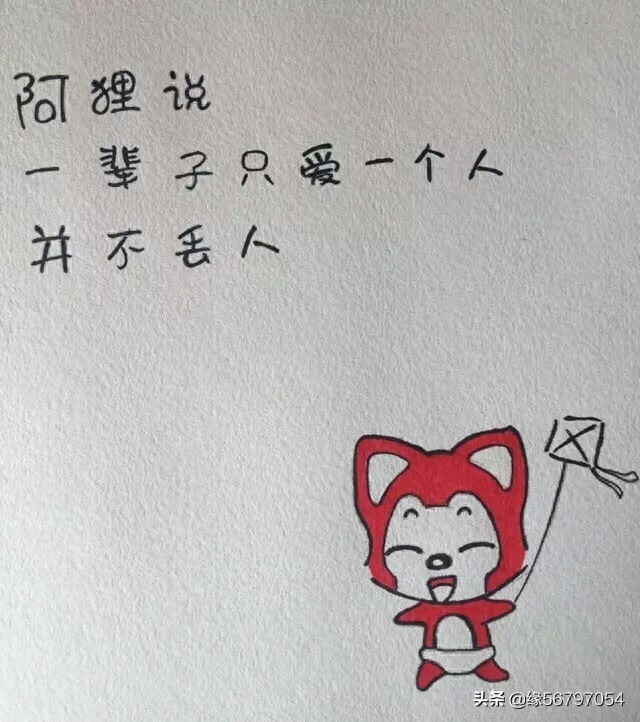 阿狸说
一辈子只爱一个人
并不丢人
头条 @缘56797054